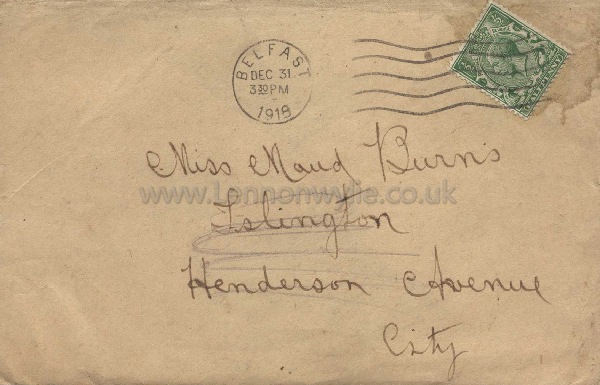 BELFAST
DEC 31
3 30 PM
1918
Miss Maud Burns
www.Lennonwylie.co.uk
Islington
Henderson Avenue
City